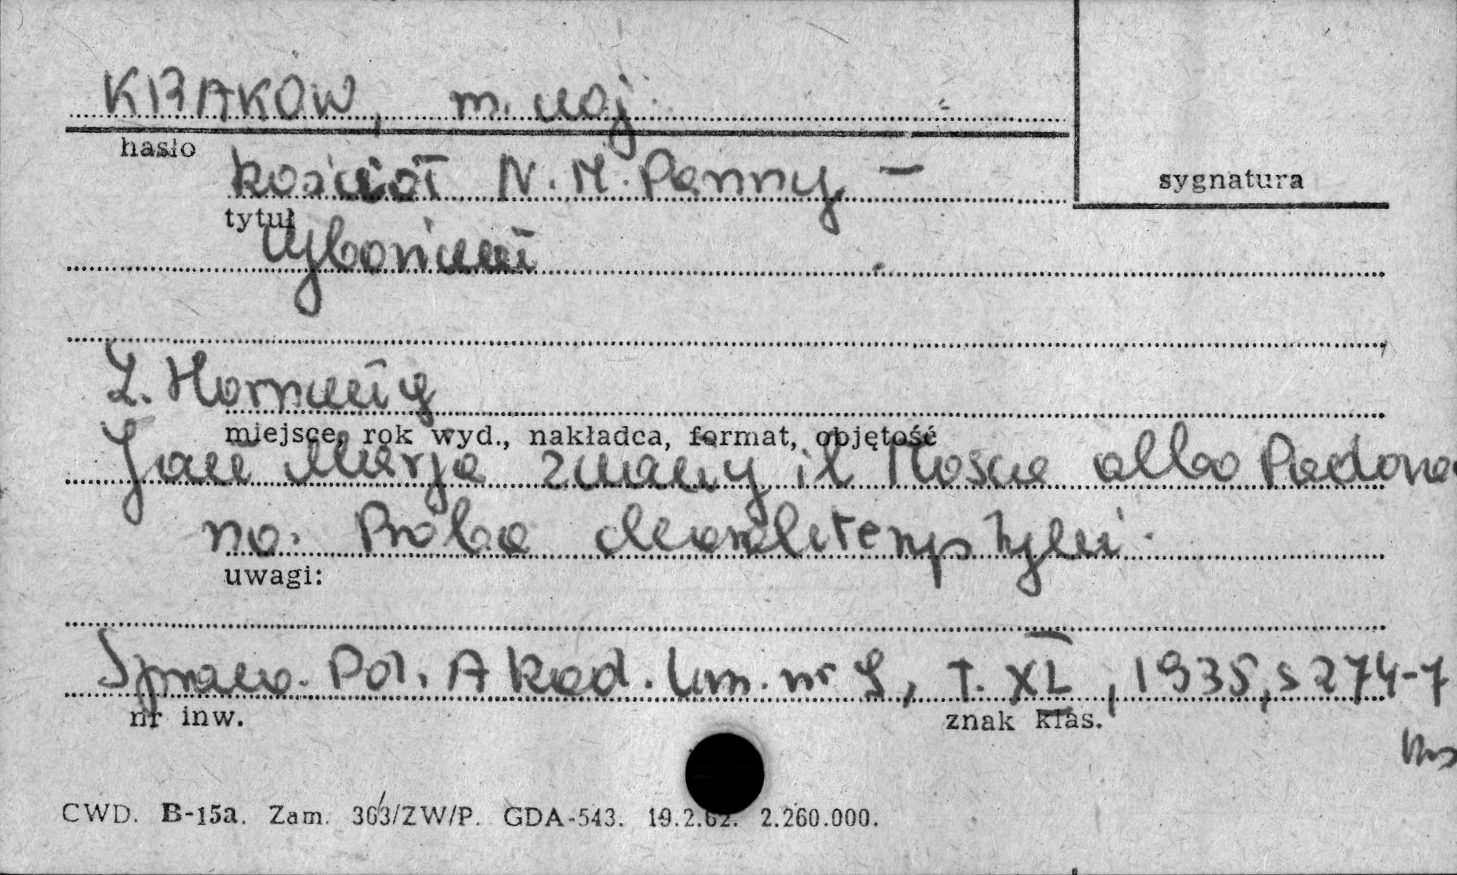 KRAKÓW, m. woj.
hasło
sygnatura
kościół N. M. Panny –
tytuł
Z. Hornung
miejsce, rok wyd., nakładca, format, objętość
Jan Maria zwany il Mosca albo Padova-
no. Próba charakterystyki.
uwagi:
Spraw. Pol. Akad. Um. nr 9, T. XL, 1935, s 274-7
nr inw.
znak klas.
CWD. B-15a. Zam. 363/ZW/P. GDA-543. 19.2.62. 2.260.000.